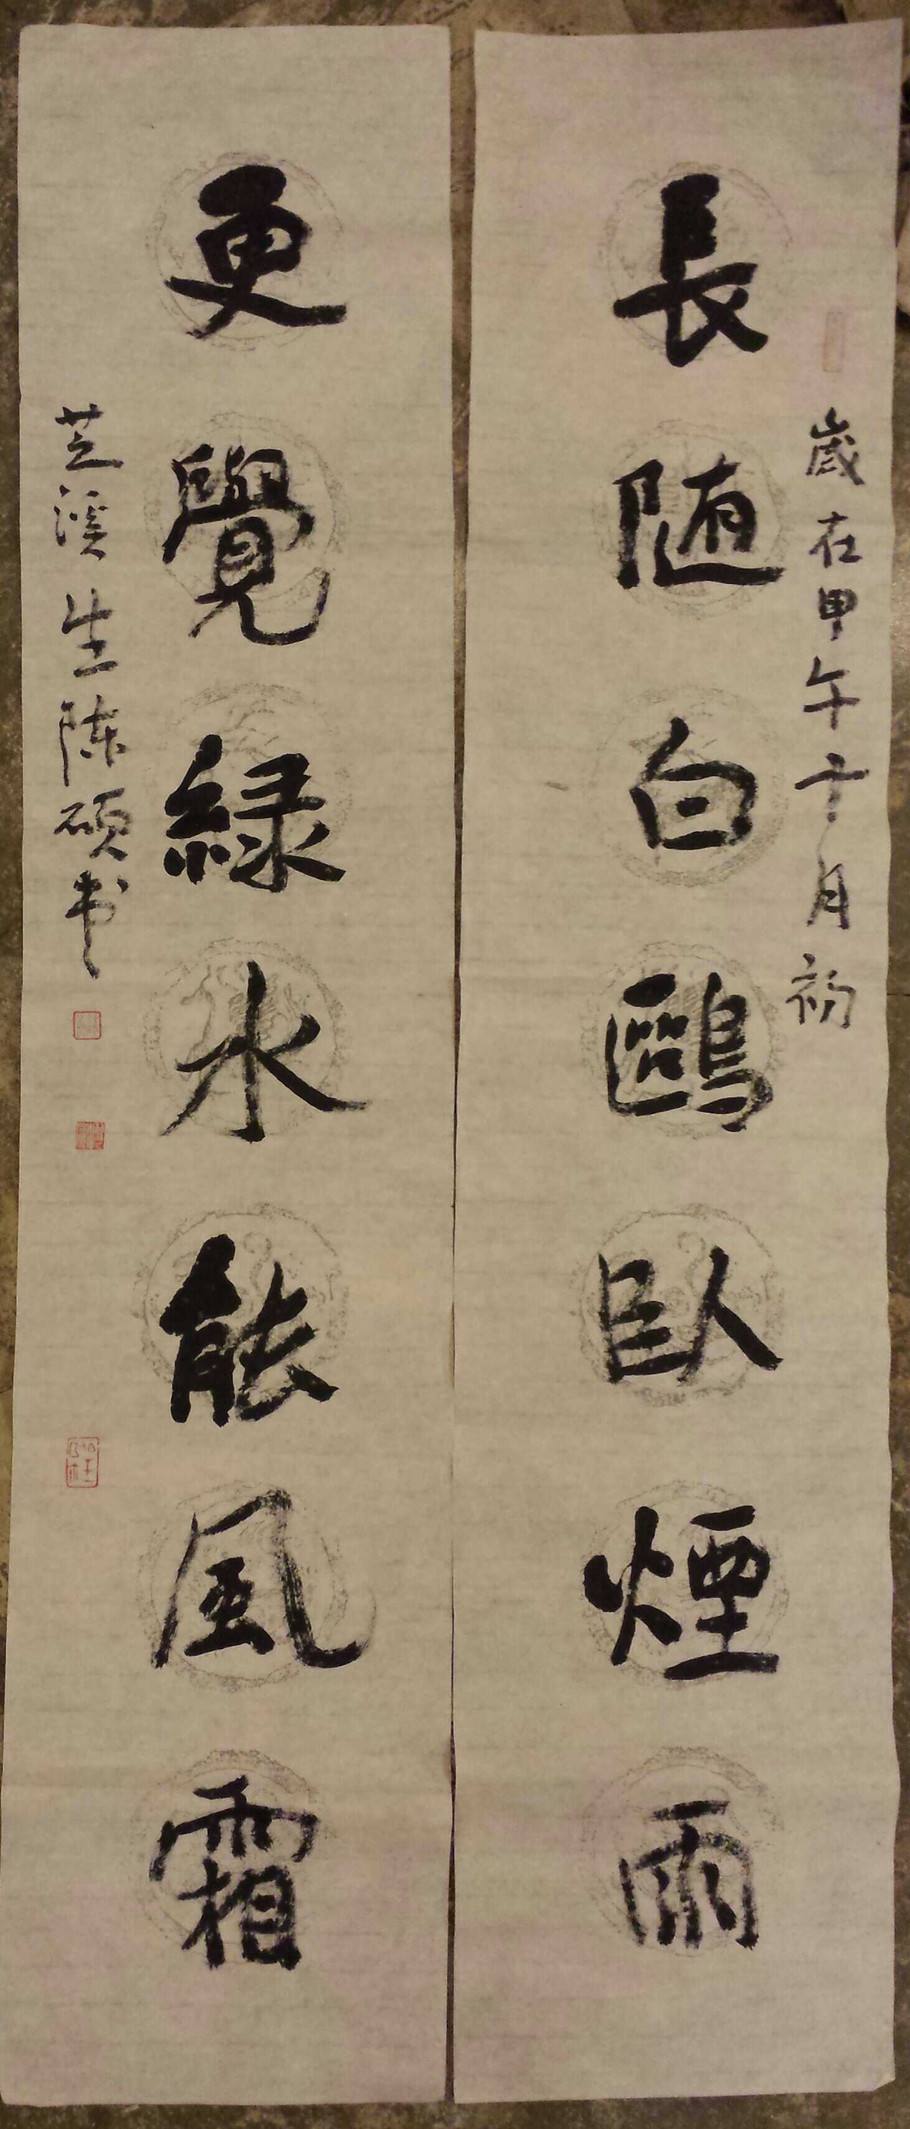 歲在甲午十月初
長随白鷗臥煙雨
更覺緑水能風霜
芝溪生陈硕书